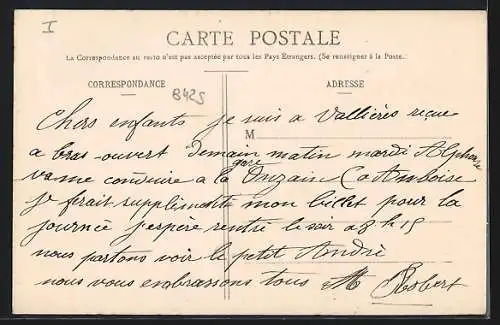 I
CARTE POSTALE
La Correspondance au recto n'est pas acceptée par tous les Pays Etrangers. (Se renseigner à la Poste.)
CORRESPONDANCE
ADRESSE
B425
M
Chers enfants je suis a Vallières reçue
a bras ouvert demain matin mardi Alphonse
va me conduire a la gare Onzain
je ferait supplémente mon billet pour la
journée j'espère rentré le soir a 8 h 15
nous partons voir le petit André
nous vous embrassons tous M Robert